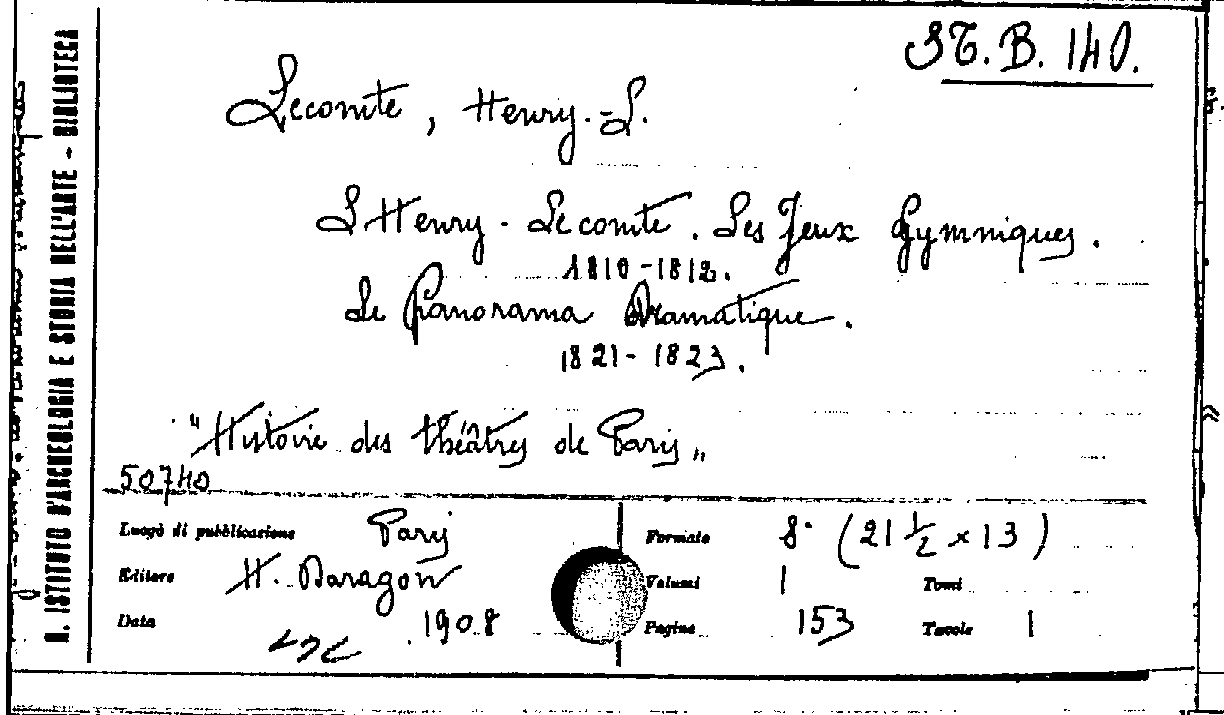 ST.B.140.
R. ISTITUTO D'ARCHEOLOGIA E STORIA DELL'ARTE - BIBLIOTECA
Lecomte, Henry-L.
L Henry-Lecomte. Les Jeux Gymniques.
1810-1812.
Le Panorama Dramatique.
1821-1823.
"Histoire des théâtres de Paris"
50740
Luogo di pubblicazione Paris
Editore H. Daragon
Data 1908
Formato 8° (21 ½ x 13)
Volumi 1 Tomi
Pagine 153 Tavole 1